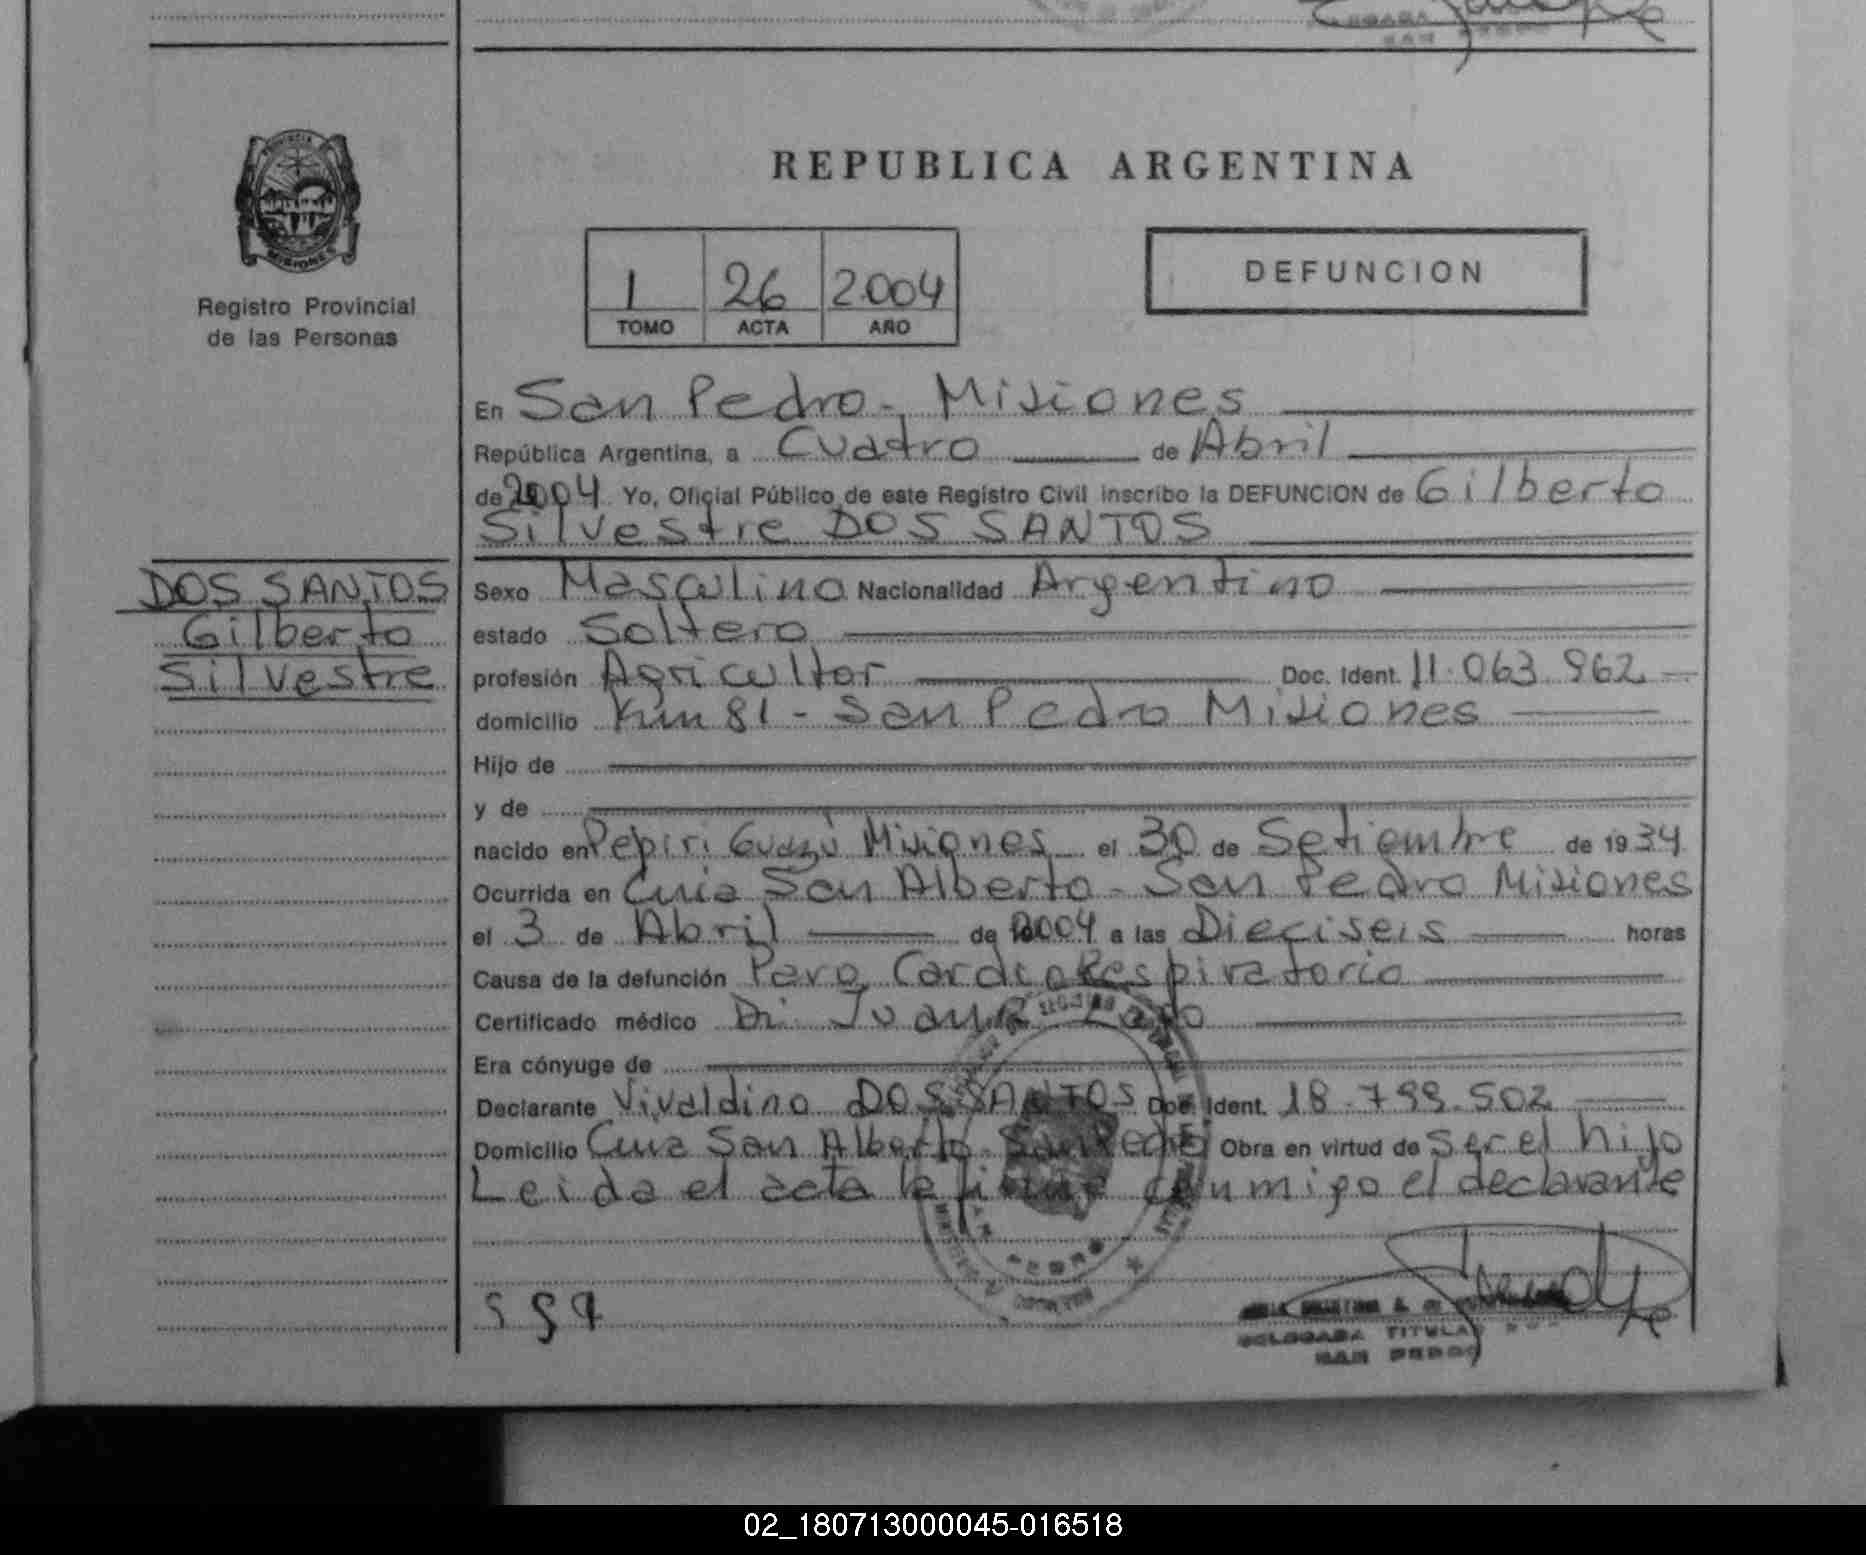 REPUBLICA ARGENTINA
PROVINCIA
MISIONES
Registro Provincial
de las Personas
1 26 2004
TOMO ACTA AÑO
DEFUNCION
En San Pedro - Misiones
República Argentina, a Cuatro de Abril
de 2004 Yo, Oficial Público de este Registro Civil inscribo la DEFUNCION de Gilberto
Silvestre DOS SANTOS
DOS SANTOS
Gilberto
Silvestre
Sexo Masculino Nacionalidad Argentino
estado Soltero
profesión Agricultor Doc. Ident. 11.063.962
domicilio Km 81 - San Pedro Misiones
Hijo de
y de
nacido en Pepiri Guazú Misiones el 30 de Setiembre de 1934
Ocurrida en Cruce San Alberto - San Pedro Misiones
el 3 de Abril de 2004 a las Dieciseis horas
Causa de la defunción Paro CardioRespiratorio
Certificado médico Dr. Juan
Era cónyuge de
Declarante Vivaldino DOS SANTOS Doc. Ident. 18.799.502
Domicilio San Alberto - San Pedro Obra en virtud de Ser el hijo
Leida el acta la firma conmigo el declarante
TITULAR
SAN PEDRO
02_180713000045-016518